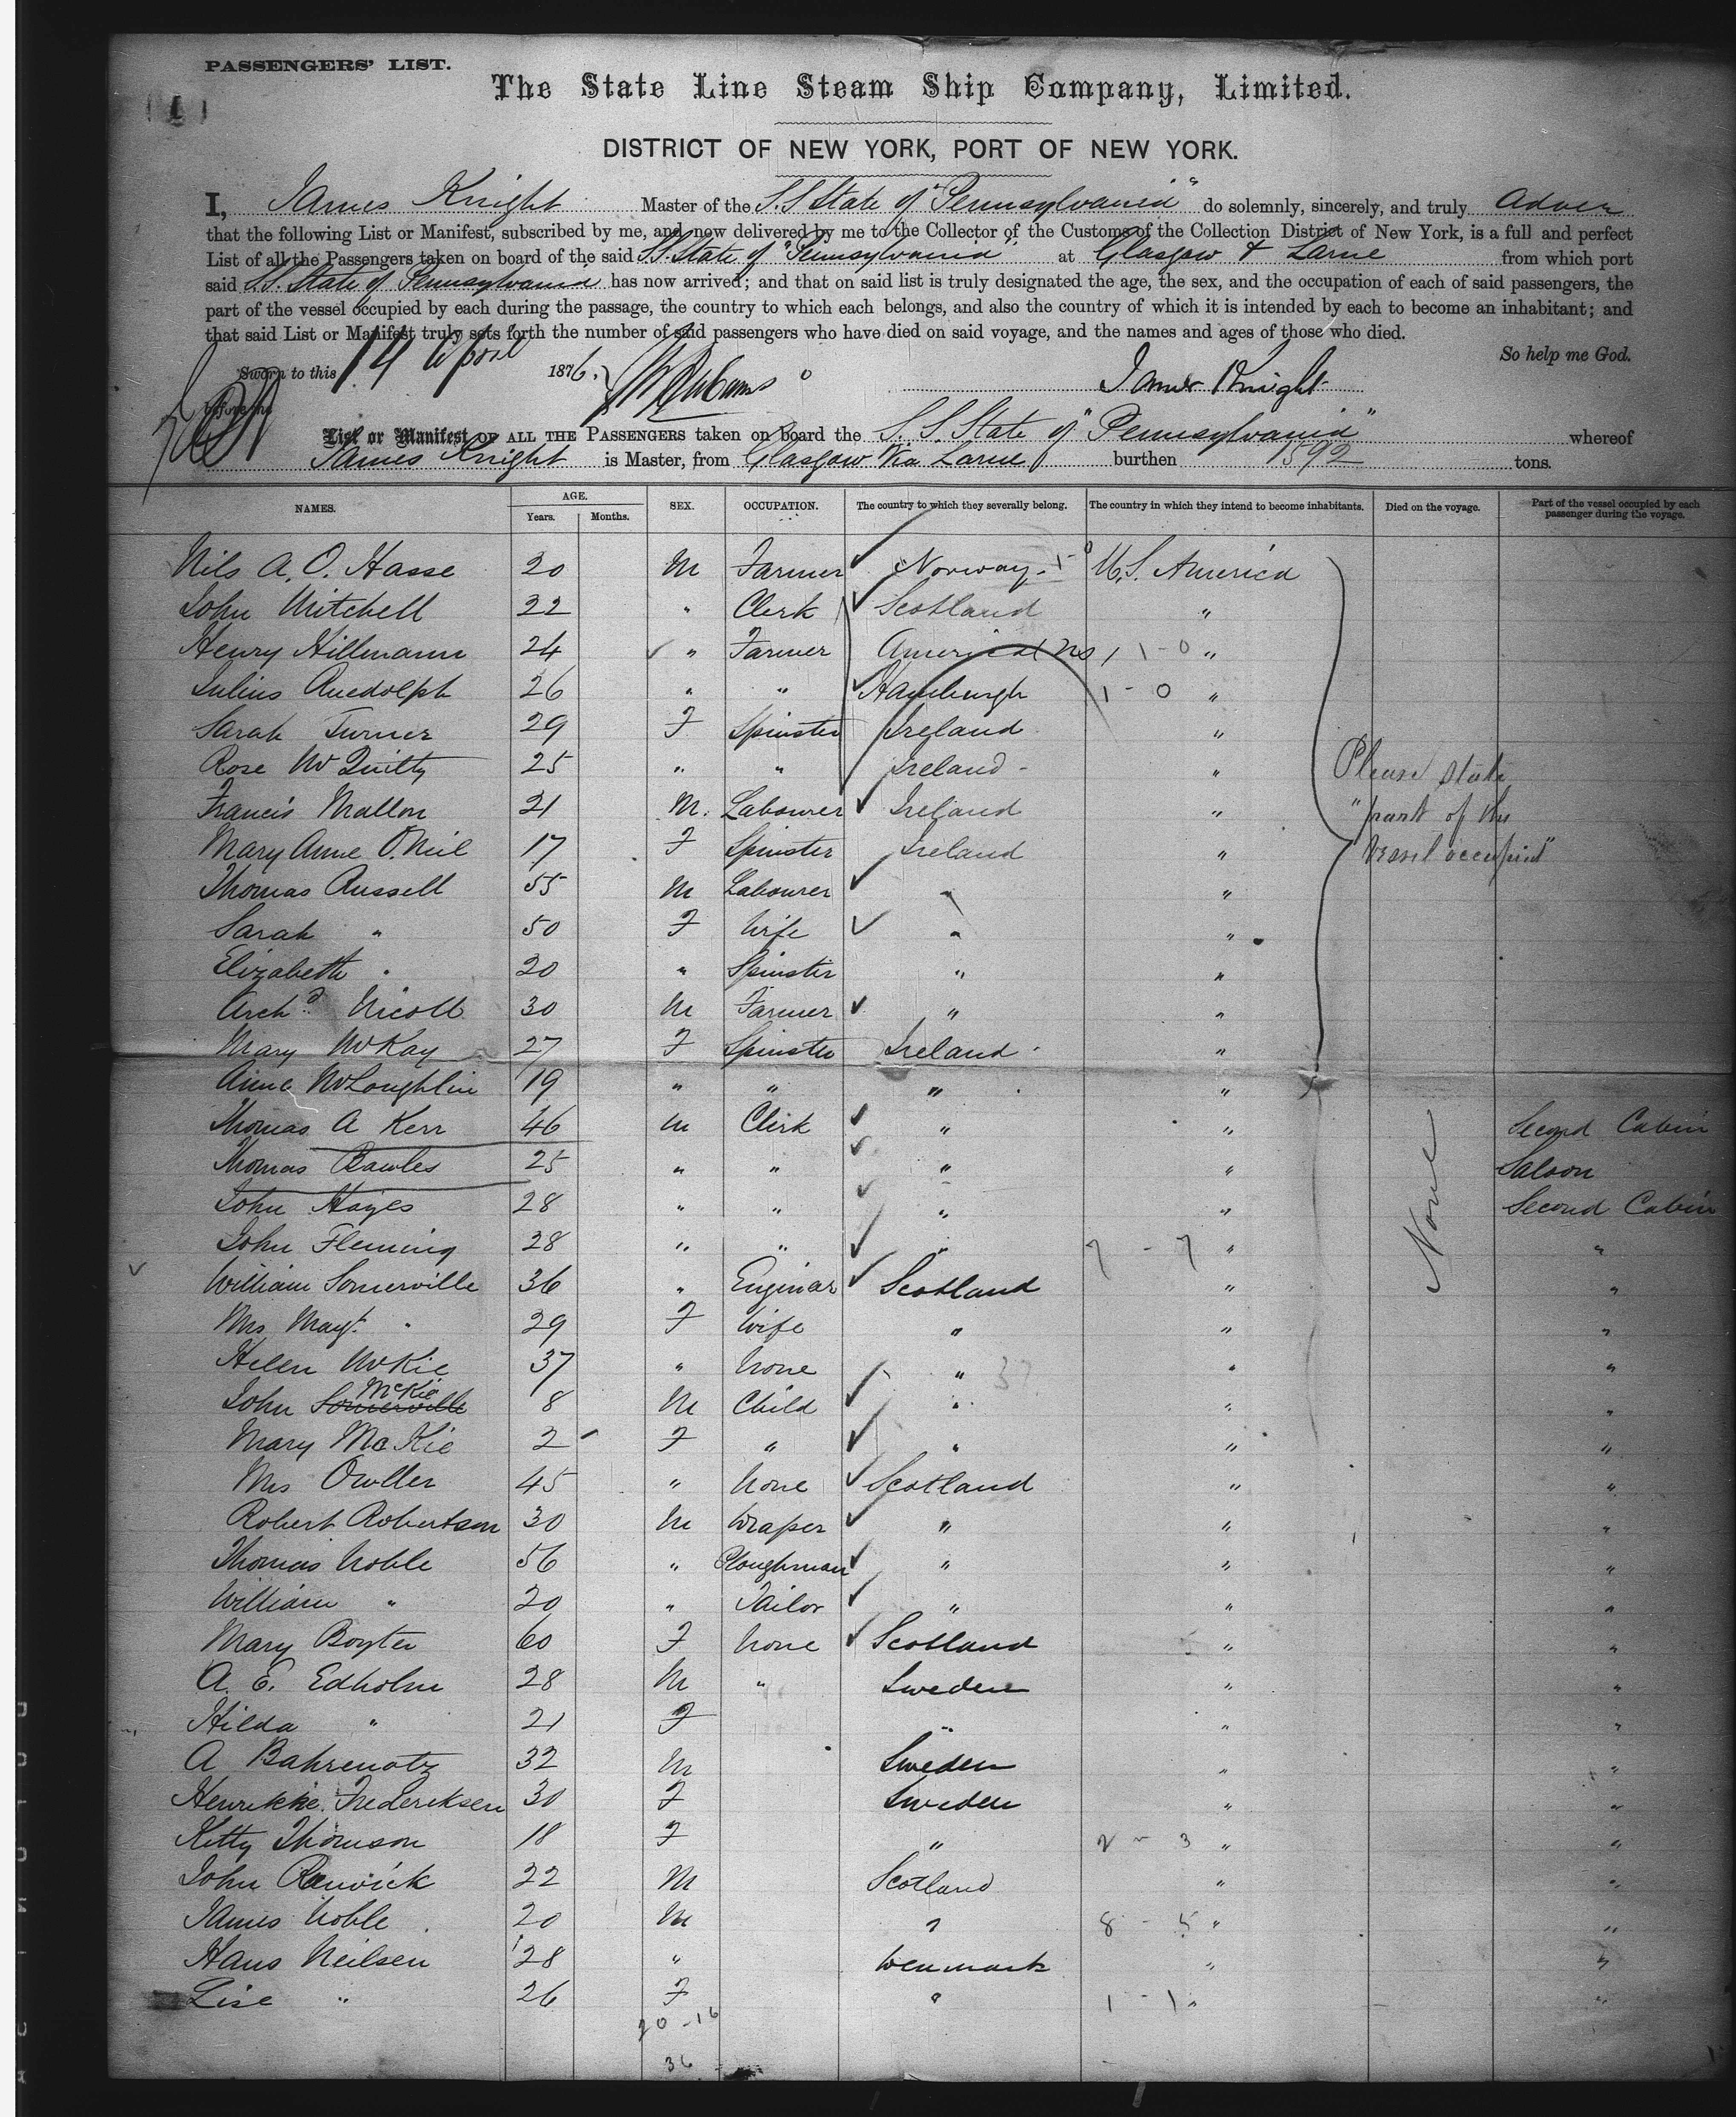 PASSENGERS' LIST.
The State Line Steam Ship Company, Limited.
DISTRICT OF NEW YORK, PORT OF NEW YORK.
I, James Knight Master of the S.S State of "Pennsylvania" do solemnly, sincerely, and truly
that the following List or Manifest, subscribed by me, and now delivered by me to the Collector of the Customs of the Collection District of New York, is a full and perfect
List of all the Passengers taken on board of the said S.S. State of "Pennsylvania" at Glasgow & Larne from which port
said S.S. State of Pennsylvania has now arrived; and that on said list is truly designated the age, the sex, and the occupation of each of said passengers, the
part of the vessel occupied by each during the passage, the country to which each belongs, and also the country of which it is intended by each to become an inhabitant; and
that said List or Manifest truly sets forth the number of said passengers who have died on said voyage, and the names and ages of those who died.
So help me God.
Sworn to this 14 April 1876.
James Knight
before me
List or Manifest OF ALL THE PASSENGERS taken on board the S.S. State of "Pennsylvania" whereof
James Knight is Master, from Glasgow Via Larne burthen 1592 tons.
NAMES. AGE. Years. Months. SEX. OCCUPATION. The country to which they severally belong. The country in which they intend to become inhabitants. Died on the voyage. Part of the vessel occupied by each passenger during the voyage.
Nils A. O. Hasse 20 M Farmer Norway U.S. America
John Mitchell 22 " Clerk Scotland "
Henry Hillmann 24 " Farmer America 1 - 0 "
Julius Ruedolph 26 " " Hamburgh 1 - 0 "
Sarah Turner 29 F Spinster Ireland "
Rose McQuilty 25 " " Ireland "
Please state
Francis Mallon 21 M. Labourer Ireland "
"part of the
Mary Anne O.Neil 17 F Spinster Ireland "
vessel occupied"
Thomas Russell 55 M Labourer " "
Sarah " 50 F Wife " "
Elizabeth " 20 " Spinster " "
Archd Nicoll 30 M Farmer " "
Mary McKay 27 F Spinster Ireland "
Anne McLoughlin 19 " " " "
Thomas A Kerr 46 M Clerk " " Second Cabin
Thomas Bawles 25 " " " " Saloon
John Hayes 28 " " " " Second Cabin
None
John Fleming 28 " " " 7 - 7 " "
William Somerville 36 " Enginear Scotland " "
Mrs Magt. " 29 F Wife " " "
Helen McKie 37 " None " " "
John Somerville McKie 8 M Child " " "
Mary McKie 2 F " " " "
Mrs Owller 45 " None Scotland " "
Robert Robertson 30 M Draper " " "
Thomas Noble 56 " Ploughman " " "
William " 20 " Tailor " " "
Mary Boyter 60 F None Scotland " "
A. E. Edholm 28 M " Sweden " "
Hilda " 21 F " " "
A Bahrenotz 32 M Sweden " "
Henrikke Frederiksen 30 F Sweden " "
Kitty Thomson 18 F " 2 - 3 " "
John Renwick 22 M Scotland " "
James Noble 20 M " 8 - 5 " "
Hans Neilsen 28 " Denmark " "
Lise " 26 F " 1 - 1 " "
20 - 16
36